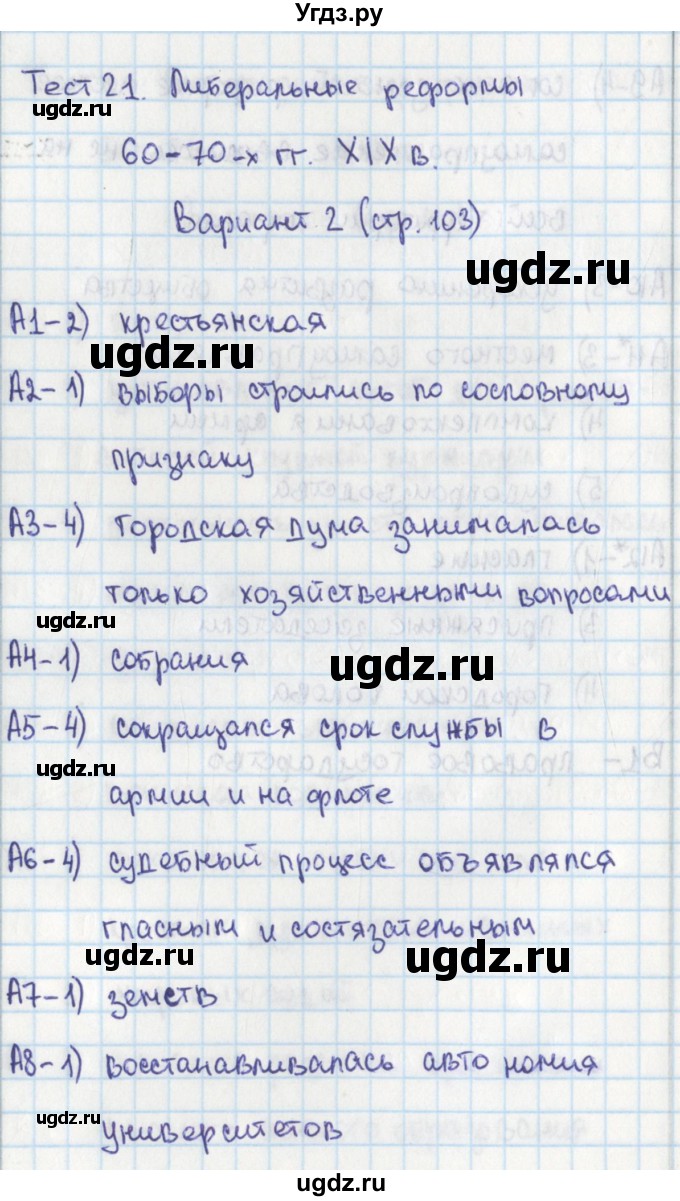 Угдз.ру
Тест 21. Либеральные реформы
60-70-х гг. XIX в.
Вариант 2 (стр. 103)
А1-2) крестьянская
А2-1) выборы строились по сословному
признаку
А3-4) городская дума занималась
только хозяйственными вопросами
А4-1) собрания
А5-4) сокращался срок службы в
армии и на флоте
А6-4) судебный процесс объявлялся
гласным и состязательным
А7-1) земств
А8-1) восстанавливалась автономия
университетов
ugdz.ru
ugdz.ru
ugdz.ru
ugdz.ru
ugdz.ru
ugdz.ru
ugdz.ru
ugdz.ru
ugdz.ru
ugdz.ru